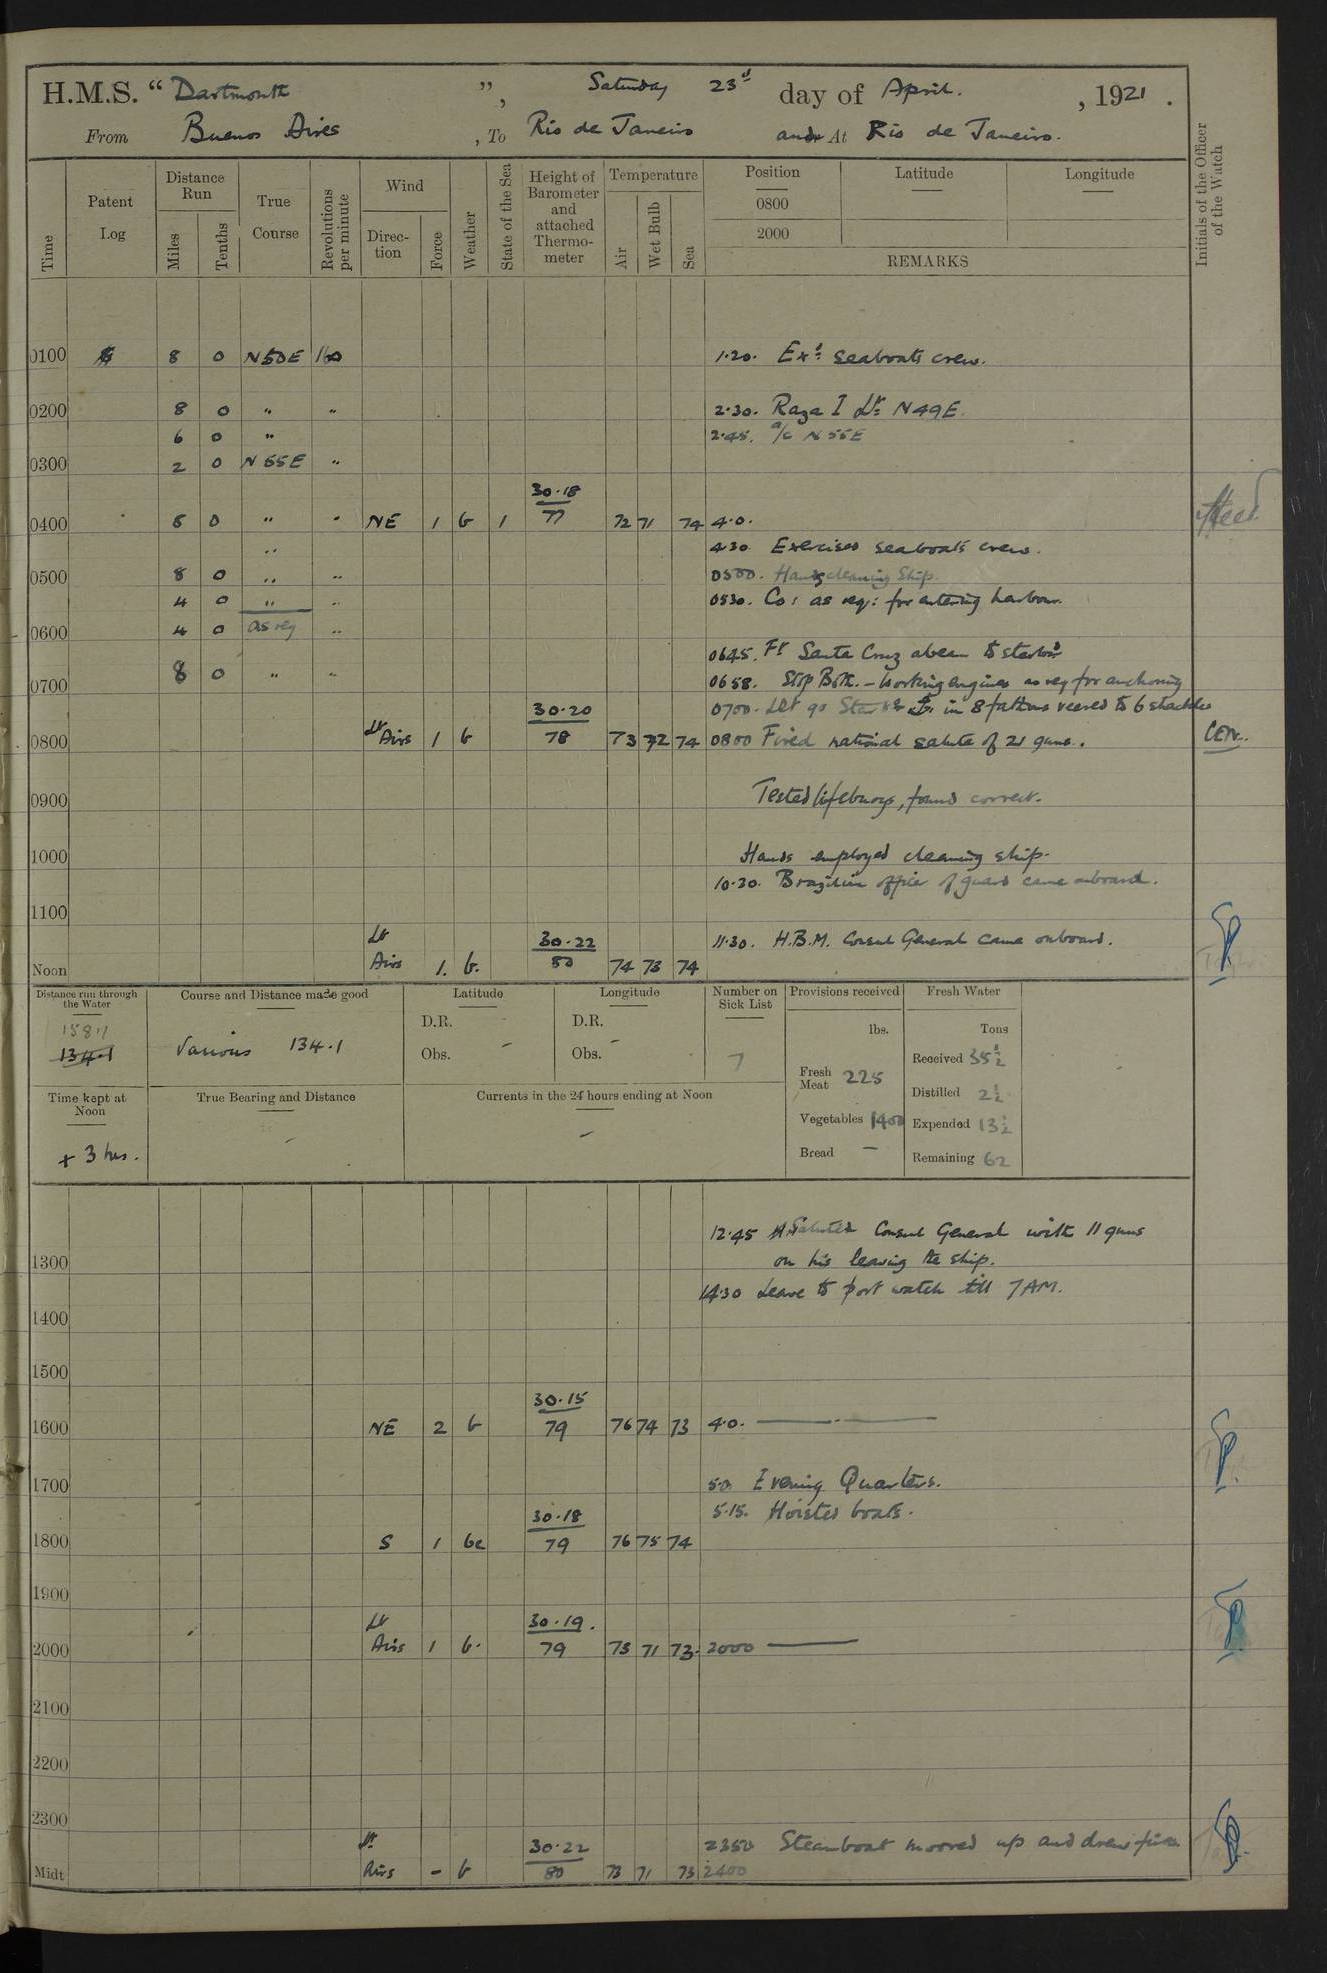 H.M.S. “ Dartmouth ”, Saturday 23rd day of April. , 1921 .
From Buenos Aires , To Rio de Janeiro and At Rio de Janeiro.
Time Patent Log Distance Run Miles Tenths True Course Revolutions per minute Wind Direction Force Weather State of the Sea Height of Barometer and attached Thermometer Temperature Air Wet Bulb Sea Position 0800 2000 Latitude Longitude REMARKS Initials of the Officer of the Watch
0100 8 0 N50E 160 1.20. Exd seaboats crew.
0200 8 0 " " 2.30. Raza I Lt N49E
6 0 " 2.45. a/c N55E
0300 2 0 N55E "
30.18
0400 8 0 " " NE 1 b 1 77 72 71 74 4.0.
" 4.30 Exercised seaboats crew.
0500 8 0 " " 0500. Hands cleaning Ship.
4 0 " " 0530. Co: as req: for entering harbour.
0600 4 0 as req "
0645. Ft Santa Cruz abeam to starbd
0700 8 0 " " 0658. Stop Both. - Working engines as req for anchoring
30.20 0700. Let go in 8 fathoms veered to 6 shackles
0800 Lt Airs 1 b 78 73 72 74 0800 Fired national salute of 21 guns.
0900 Tested lifebuoys, found correct.
1000 Hands employed cleaning ship.
10.30. Brazilian officer of guard came onboard.
1100
Lt 30.22 11.30. H.B.M. Consul General came onboard.
Noon Airs 1. b. 80 74 73 74
Distance run through the Water Course and Distance made good Latitude Longitude Number on Sick List Provisions received Fresh Water
158.11 D.R. D.R. lbs. Tons
134.1 Various 134.1 Obs. - Obs. - 7 Received 35½
Fresh Meat 225
Time kept at Noon True Bearing and Distance Currents in the 24 hours ending at Noon Distilled 2½
Vegetables 1400 Expended 13½
+ 3 hrs. - - Bread - Remaining 62
12.45 Saluted Consul General with 11 guns
1300 on his leaving the ship.
14.30 Leave to port watch till 7AM.
1400
1500
30.15
1600 NE 2 b 79 76 74 73 4.0.
1700 5.0 Evening Quarters.
30.18 5.15. Hoisted boats.
1800 S 1 bc 79 76 75 74
1900
Lt 30.19.
2000 Airs 1 b. 79 73 71 73. 2000
2100
2200
2300
Lt 30.22 2350 Steamboat moored up and drew fires
Midt Airs - b 80 73 71 73 2400